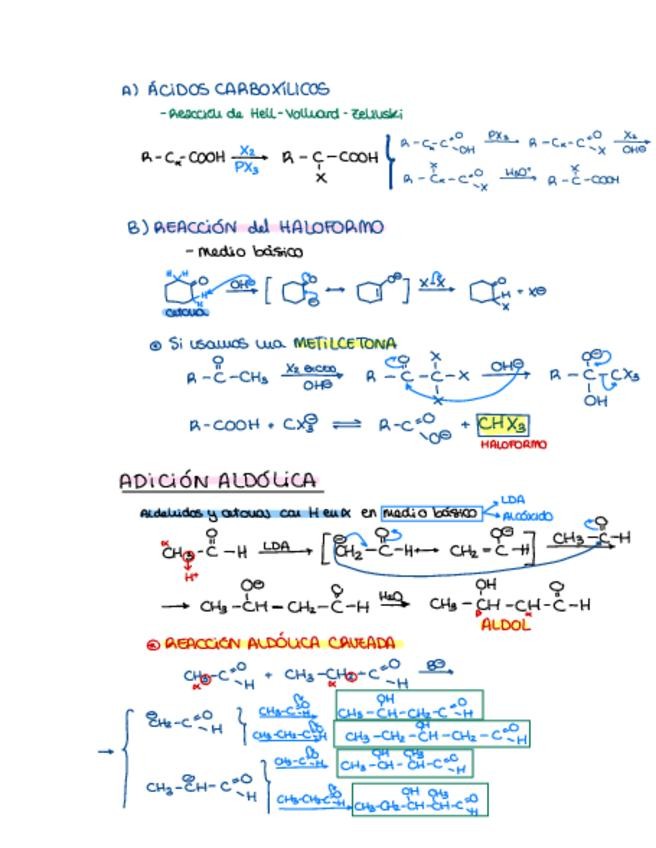 A) ÁCIDOS CARBOXÍLICOS
- Reacción de Hell-Vollhard-Zelinski
R-Cα-COOH X₂ PX₃ → R-C-COOH X
R-Cα-C=O OH PX₃ → R-Cα-C=O X X₂ OH⊖
R-C-C=O X X H₃O⁺ → R-C-COOH X
B) REACCIÓN del HALOFORMO
- medio básico
H H O H H OH⊖ → [ O ⊖ ↔ O⊖ ] X-X → O H X + X⊖
cetona
Si usamos una METILCETONA
R-C-CH₃ O X₂ exceso OH⊖ → R-C-C-X O X X OH⊖ → R-C-CX₃ O⊖ OH
R-COOH + CX₃⊖ ⇌ R-C=O O⊖ + CHX₃
HALOFORMO
ADICIÓN ALDÓLICA
Aldehídos y cetonas con H en α en medio básico LDA
ALCÓXIDO
α CH₃-C-H O H⁺ LDA → [ ⊖CH₂-C-H O ↔ CH₂=C-H O⊖ ] CH₃-C-H O
→ CH₃-CH-CH₂-C-H O⊖ O H₂O → CH₃-CH-CH-C-H OH O β α
ALDOL
REACCIÓN ALDÓLICA CRUZADA
CH₃-C=O H α + CH₃-CH₂-C=O H α B⊖ →
⊖CH₂-C=O H CH₃-C-H O → CH₃-CH-CH₂-C=O H OH
CH₃-CH₂-C-H O → CH₃-CH₂-CH-CH₂-C=O H OH
→ CH₃-C-H O → CH₃-CH-CH-C=O H OH CH₃
CH₃-⊖CH-C=O H CH₃-CH₂-C=O H → CH₃-CH₂-CH-CH-C=O H OH CH₃